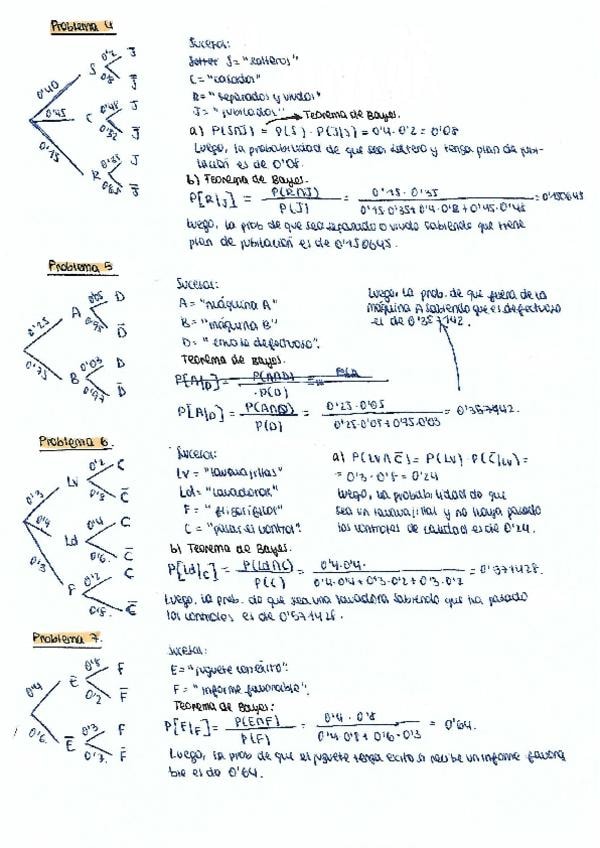 Problema 4
0'40 S 0'2 J
0'8 J̅
0'45 C 0'48 J
0'52 J̅
0'15 R 0'35 J
0'65 J̅
Sucesos:
S = "solteros"
C = "casados"
R = "separados y viudos"
J = "jubilados" Teorema de Bayes.
a) P(S∩J) = P(S) · P(J|S) = 0'4 · 0'2 = 0'08
Luego, la probabilidad de que sea soltero y tenga plan de jubi-
lación es de 0'08.
b) Teorema de Bayes.
P[R|J] = P(R∩J) / P(J) = 0'15 · 0'35 / 0'15·0'35+0'4·0'8+0'45·0'48 = 0'150645
Luego, la prob de que sea separado o viudo sabiendo que tiene
plan de jubilación es de 0'150645.
Problema 5
0'25 A 0'05 D
0'95 D̅
0'75 B 0'03 D
0'97 D̅
Sucesos:
A = "máquina A"
B = "máquina B"
D = "envase defectuoso".
Teorema de Bayes.
P[A|D] = P(A∩D) / P(D) =
P[A|D] = P(A∩D) / P(D) = 0'25 · 0'05 / 0'25·0'05+0'75·0'03 = 0'357142.
Luego, la prob. de que fuera de la
máquina A sabiendo que es defectuoso
es de 0'357142.
Problema 6.
0'3 Lv 0'2 C
0'8 C̅
0'4 Ld 0'4 C
0'6 C̅
0'3 F 0'2 C
0'8 C̅
Sucesos:
Lv = "lavavajillas"
Ld = "lavadoras"
F = "frigoríficos"
C = "pasar el control".
a) P(Lv∩C̅) = P(Lv) · P(C̅|Lv) =
= 0'3 · 0'8 = 0'24
Luego, la probabilidad de que
sea un lavavajillas y no haya pasado
los controles de calidad es de 0'24.
b) Teorema de Bayes.
P[Ld|C] = P(Ld∩C) / P(C) = 0'4·0'4 / 0'4·0'4+0'3·0'2+0'3·0'2 = 0'571428.
Luego, la prob. de que sea una lavadora sabiendo que ha pasado
los controles es de 0'571428.
Problema 7.
0'4 E 0'8 F
0'2 F̅
0'6 E̅ 0'3 F
F̅
Sucesos:
E = "juguete con éxito".
F = "informe favorable".
Teorema de Bayes:
P[F|F] = P(E∩F) / P(F) = 0'4 · 0'8 / 0'4·0'8+0'6·0'3 = 0'64.
Luego, la prob de que el juguete tenga éxito si recibe un informe favora
ble es de 0'64.